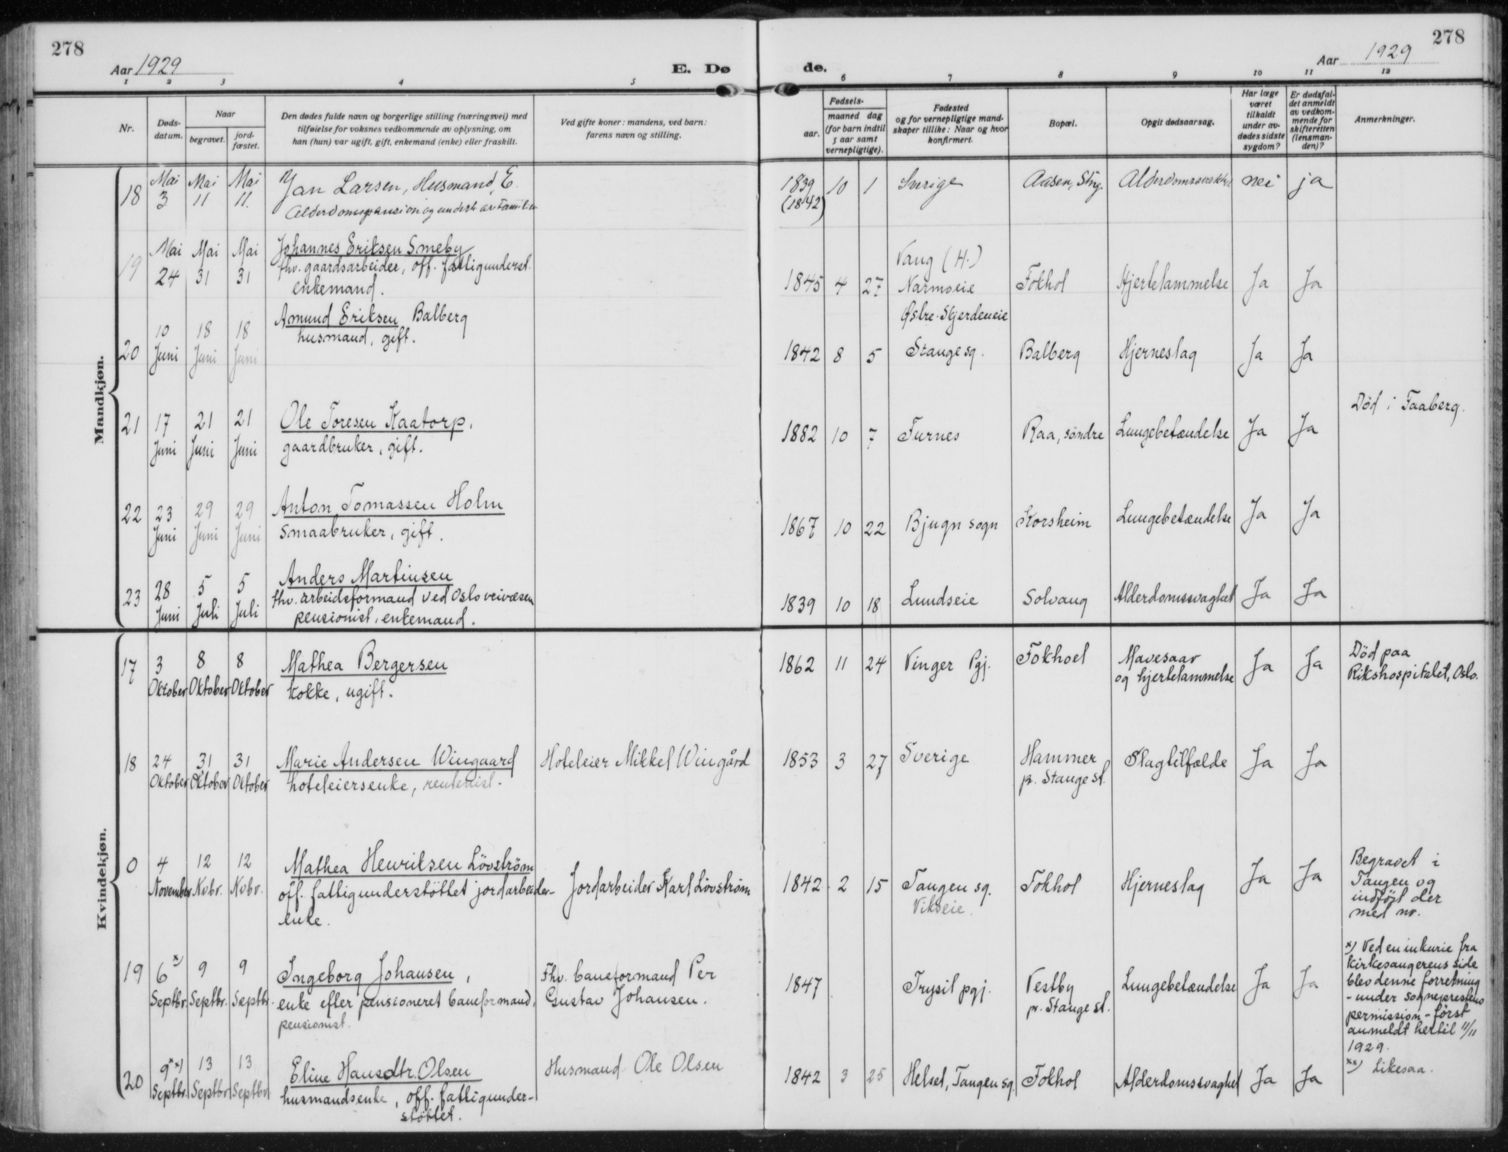 278
Aar 1929
E. Dø
de.
Aar 1929
278
1 2 3 4 5 6 7 8 9 10 11 12
Nr.
Døds-
datum.
Naar
begravet.
jord-
fæstet.
Den dødes fulde navn og borgerlige stilling (næringsvei) med
tilføielse for voksnes vedkommende av oplysning, om
han (hun) var ugift, gift, enkemand (enke) eller fraskilt.
Ved gifte koner: mandens, ved barn:
farens navn og stilling.
Fødsels-
aar.
maaned dag
(for barn indtil
5 aar samt
vernepligtige).
Fødested
og for vernepligtige mand-
skaper tillike: Naar og hvor
konfirmert.
Bopæl.
Opgit dødsaarsag.
Har læge
været
tilkaldt
under av-
dødes sidste
sygdom?
Er dødsfal-
det anmeldt
av vedkom-
mende for
skifteretten
(lensman-
den)?
Anmerkninger.
Mandkjøn.
18 Mai 3 Mai 11 Mai 11. Jan Larsen, Husmand, E.
Alderdomspension og underst. av
1839 (1842) 10 1 Sverige Aasen, Stng. nei ja
19 Mai 24 Mai 31 Mai 31 Johannes Eriksen Smeby
fhv. gaardsarbeider, off. fattigunderst.
enkemand.
1845 4 27 Vang (H.)
Narmoeie Fokhol Hjertelammelse Ja Ja
20 10 Juni 18 Juni 18 Juni Amund Eriksen Balberg
husmand, gift.
1842 8 5 Østre-Skjerdeneie
Stange sg. Balberg Hjerneslag Ja Ja
21 17 Juni 21 Juni 21 Juni Ole Toresen Kaatorp,
gaardbruker, gift.
1882 10 7 Furnes Raa, søndre Lungebetændelse Ja Ja Død i Faaberg.
22 23 Juni 29 Juni 29 Juni Anton Tomassen Holm
smaabruker, gift.
1867 10 22 Bjugn sogn Korsheim Lungebetændelse Ja Ja
23 28 Juni 5 Juli 5 Juli Anders Martinsen
fhv. arbeidsformand ved Oslo veivæsen
pensionist, enkemand.
1839 10 18 Lundseie Solvang Alderdomssvaghet Ja Ja
Kvindekjøn.
17 3 Oktober 8 Oktober 8 Oktober Mathea Bergersen
kokke, ugift.
1862 11 24 Vinger Pgj. Fokhoel Mavesaar
og hjertelammelse Ja Ja Død paa
Rikshospitalet, Oslo.
18 24 Oktober 31 Oktober 31 Oktober Marie Andersen Wingaard
hoteleiersenke, rentenist.
Hoteleier Mikkel Wingård
1853 3 27 Sverige Hammer
pr. Stange st. Slagtilfælde Ja Ja
0 4 November 12 Nvbr. 12 Nvbr. Mathea Henriksen Lövström
off. fattigunderstøttet jordarbeider-
enke.
Jordarbeider Karl Lövström
1842 2 15 Tangen sg.
Vikseie. Fokhol Hjerneslag Ja Ja Begravet i
Tangen og
indført der
med nr.
19 6 x) Septbr. 9 Septbr. 9 Septbr. Ingeborg Johansen,
enke efter pensioneret baneformand,
pensionist.
Fhv. baneformand Per
Gustav Johansen.
1847 Trysil pgj. Vestby
pr. Stange st. Lungebetændelse Ja Ja x) Ved en inkurie fra
kirkesangerens side
blev denne forretning
- under sogneprestens
permission - først
anmeldt hertil 4/11
1929.
20 9 xx) Septbr. 13 Septbr. 13 Septbr. Eline Hansdtr. Olsen
husmandsenke, off. fattigunder-
støttet.
Husmand Ole Olsen
1842 3 25 Helset, Tangen sg. Fokhol Alderdomssvaghet Ja Ja xx) Likesaa.